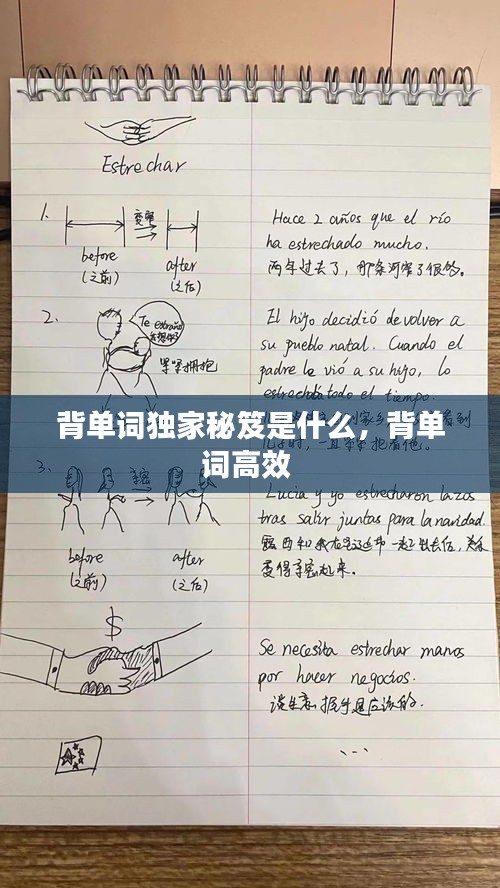 Estrechar
1.
变窄
before
(之前)
after
(之后)
Hace 2 años que el río
ha estrechado mucho.
两年过去了，那条河窄了很多。
2.
Te extraño
紧紧拥抱
El hijo decidió devolver a
su pueblo natal. Cuando el
padre le vió a su hijo, lo
estrechó todo el tiempo.
背单词独家秘笈是什么，背单
词高效
3.
亲密
before
(之前)
after
(之后)
Lucia y yo estrecharon lazos
tras salir juntas para la navidad.
变得亲密起来。
$
Se necesita estrechar manos
por hacer negocios.
谈生意握手是应该的.